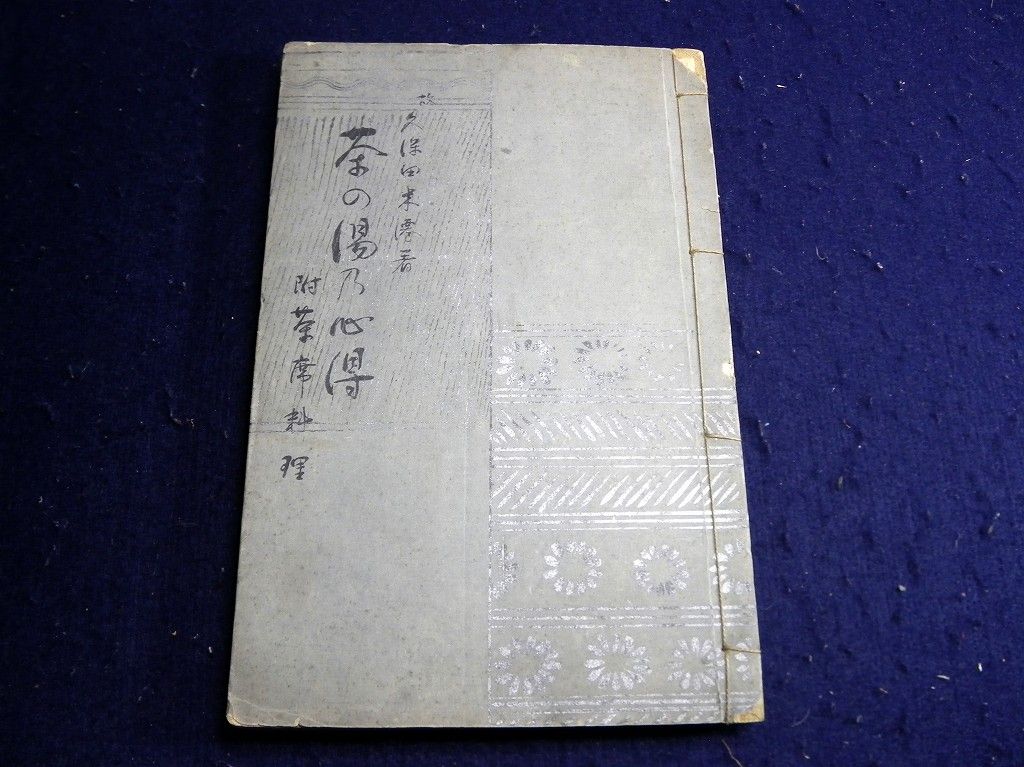 故久保田米僊著
茶の湯乃心得
附茶席料理